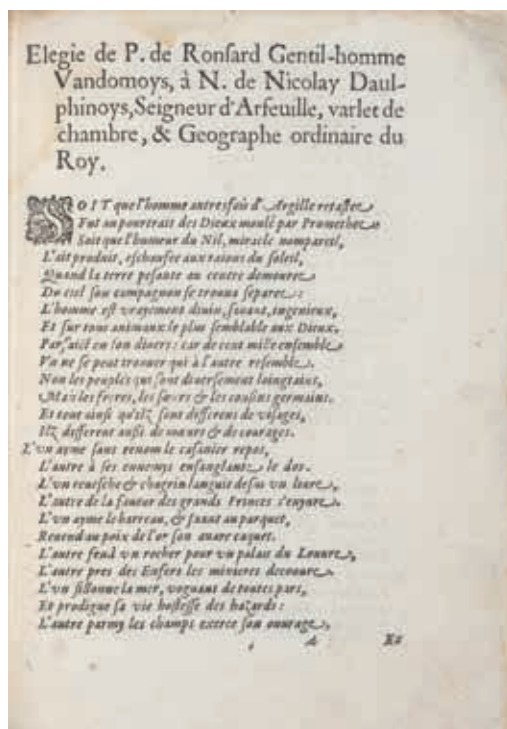 Elegie de P. de Ronſard Gentil-homme
Vandomoys, à N. de Nicolay Daul-
phinoys, Seigneur d'Arfeuille, varlet de
chambre, & Geographe ordinaire du
Roy.
SOIT que l'homme autresfois d'Argille retaſtee
Fut un pourtrait des Dieux moulé par Promethee
Soit que l'humeur du Nil, miracle nompareil,
L'ait produit, eſchaufee aux raions du ſoleil,
Quand la terre peſante au centre demouree
Du ciel ſon compagnon ſe trouua ſeparee:
L'homme eſt vrayement diuin, ſauant, ingenieux,
Et ſur tous animaux le plus ſemblable aux Dieux,
Parfaict en ſon diuers: car de cent mille enſemble
Vn ne ſe peut trouuer qui à l'autre reſemble.
Non les peuples qui ſont diuerſement loingtains,
Mais les freres, les ſœurs & les couſins germains.
Et tout ainſi qu'ilz ſont differens de viſages,
Ilz different auſſi de mœurs & de courages.
L'vn ayme ſans renom le caſanier repos,
L'autre à ſes ennemys enſanglante le dos.
L'vn reueſche & chagrin languit deſus vn liure,
L'autre de la faueur des grands Princes s'enyure.
L'vn ayme le barreau, & ſuant au parquet,
Reuend au poix de l'or ſon auare caquet.
L'autre fend vn rocher pour vn palais du Louure,
L'autre pres des Enfers les minieres decouure
L'vn ſillonne la mer, voguant de toutes pars,
Et prodigue ſa vie hoſteſſe des hazards:
L'autre parmy les champs exerce ſon ouurage,
A Et